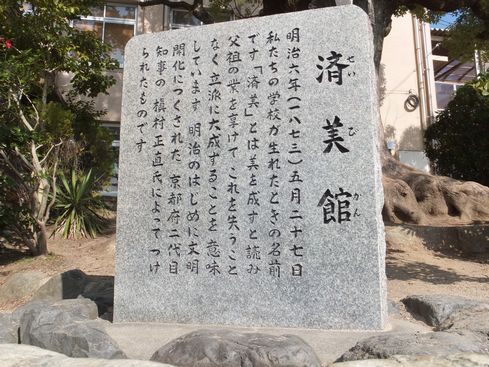 済美館
せいびかん
明治六年(一八七三)五月二十七日
私たちの学校が生れたときの名前
です「済美」とは美を成すと読み
父祖の業を享けて これを失うこと
なく立派に大成することを 意味
しています 明治のはじめに文明
開化につくされた 京都府二代目
知事の 槇村正直氏によって つけ
られたものです